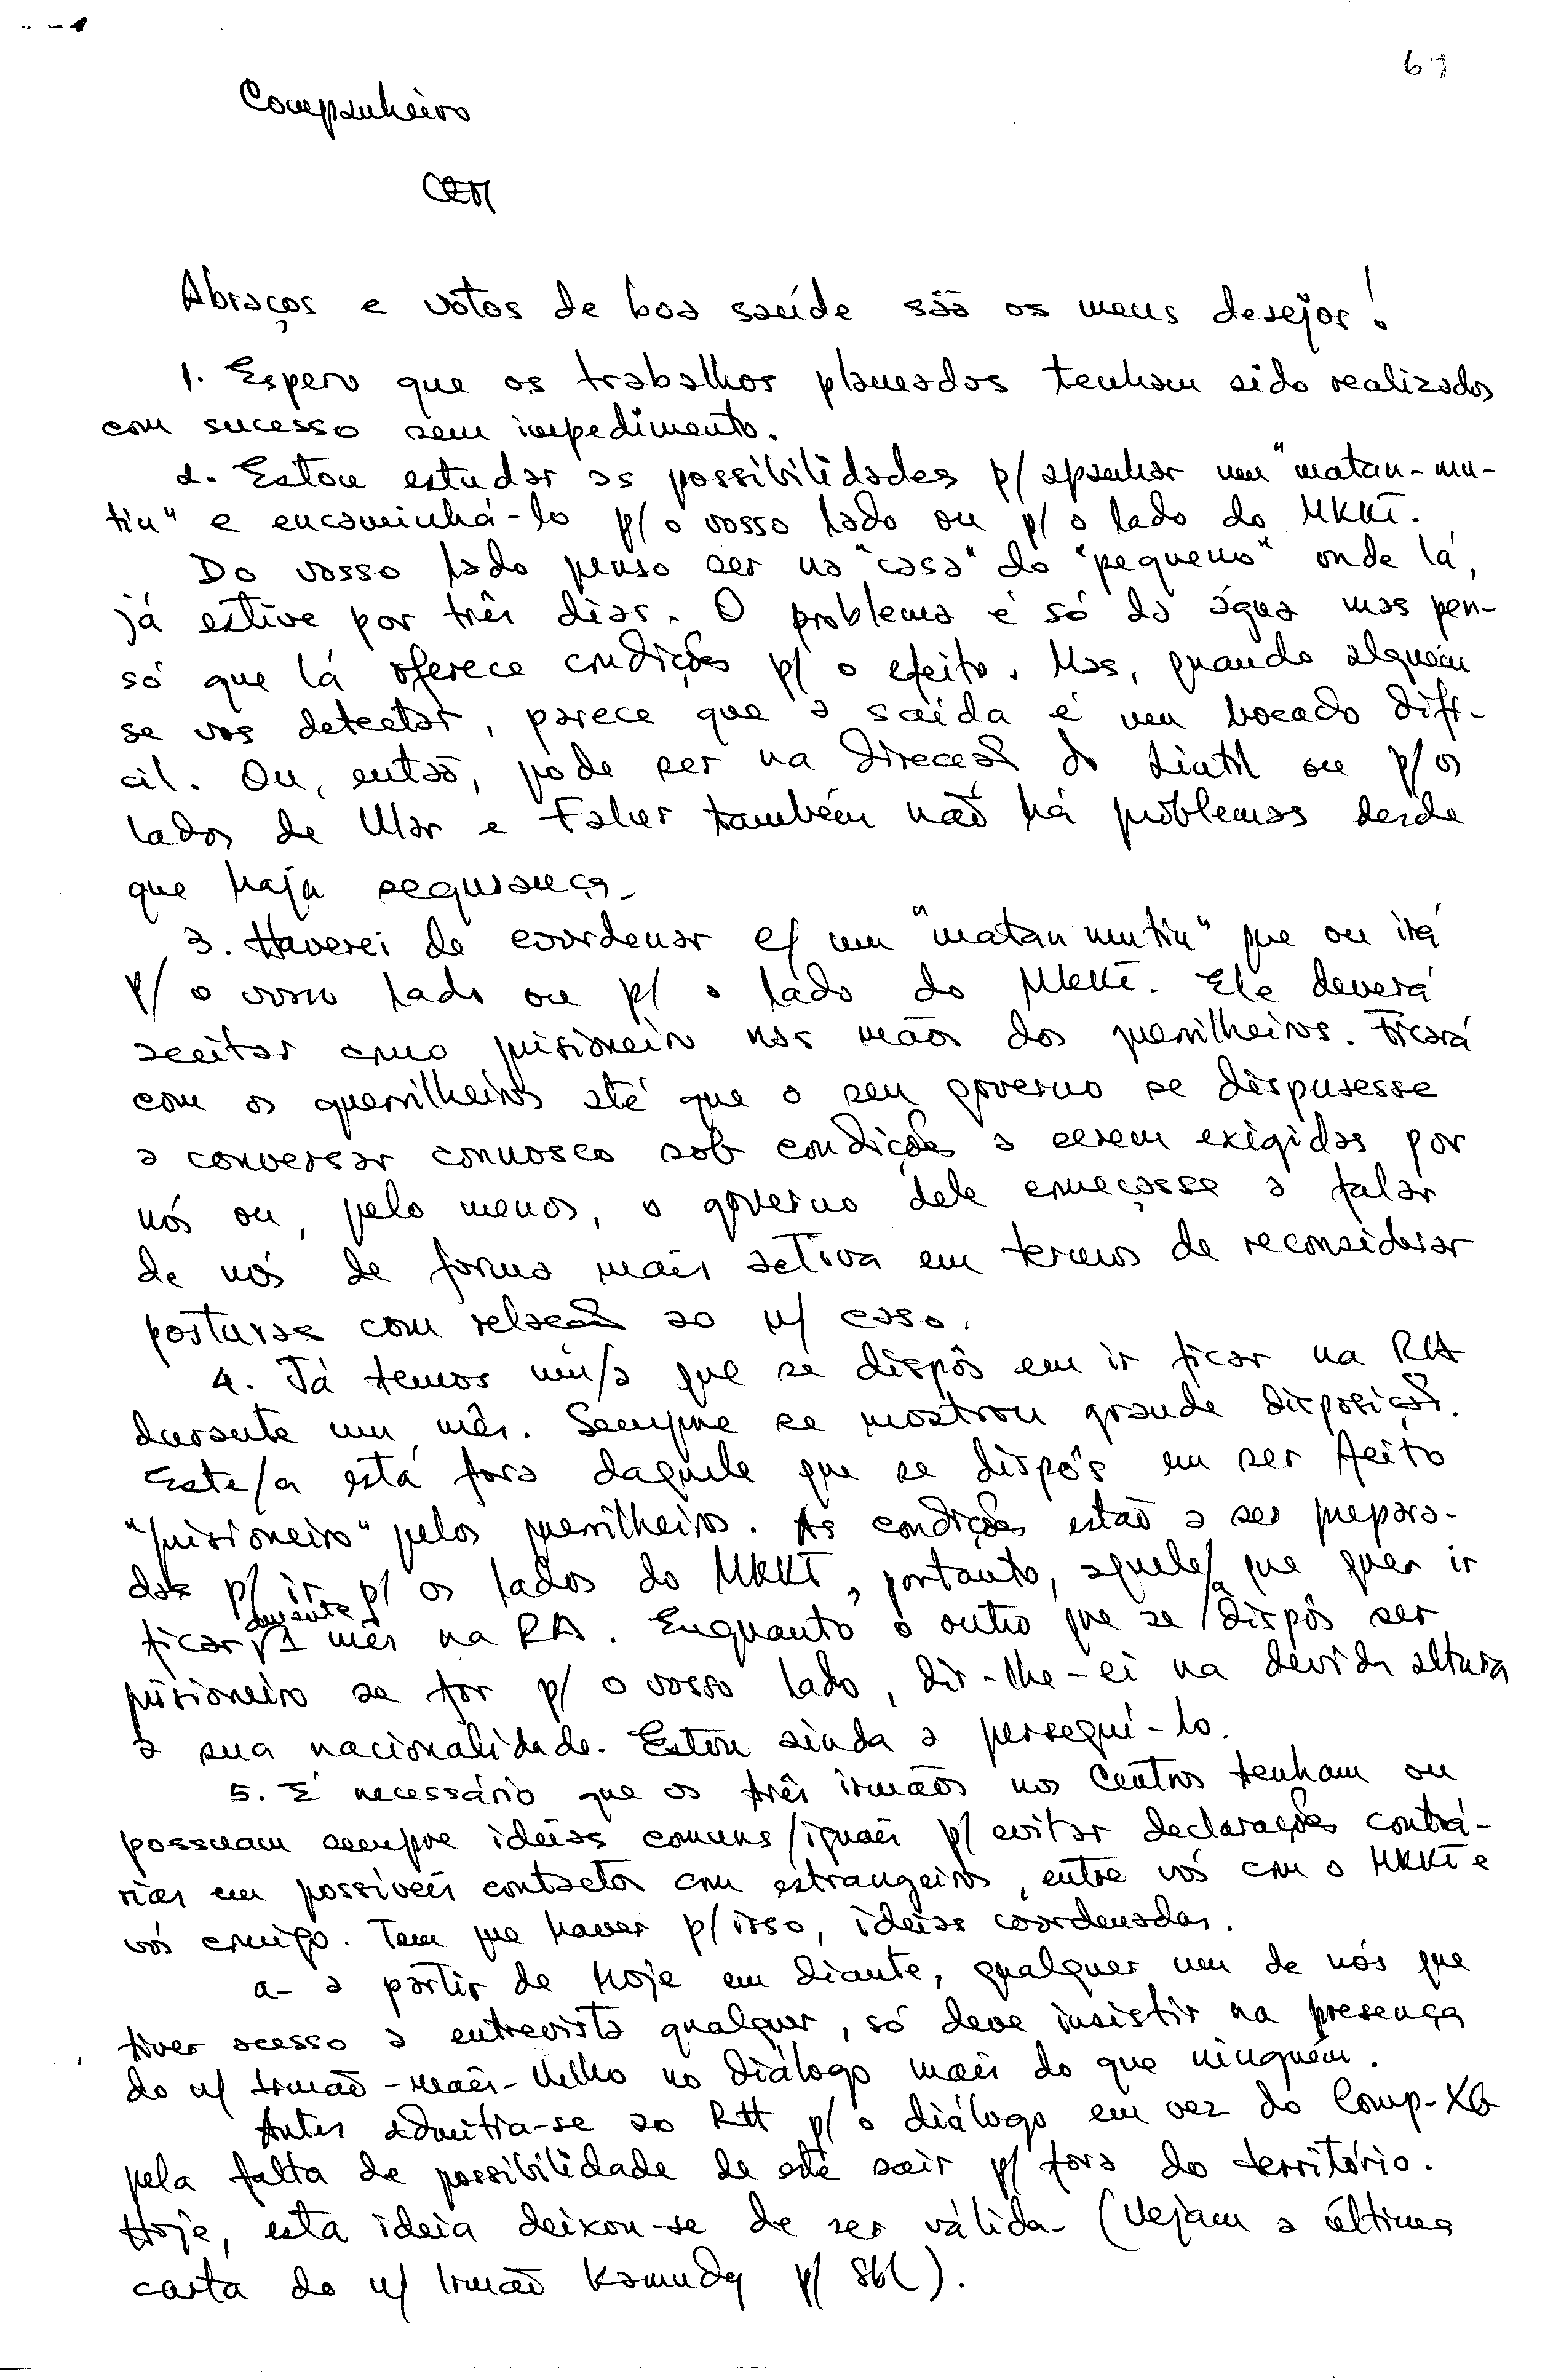 67
Companheiro
Abraços e votos de boa saúde são os meus desejos!
1. Espero que os trabalhos planeados tenham sido realizados
com sucesso sem impedimento.
2. Estou estudar as possibilidades p/ apanhar um "matan-mu-
tin" e encaminhá-lo p/ o vosso lado ou p/ o lado do MKKI.
Do vosso lado penso ser na "casa" do "pequeno" onde lá,
já estive por três dias. O problema é só da água mas pen-
só que lá oferece condições p/ o efeito. Mas, quando alguém
se vos detectar, parece que a saída é um bocado difí-
cil. Ou, então, pode ser na direcção do ou p/ os
lados de e também não há problemas desde
que haja segurança.
3. Haverei de coordenar c/ um "matan mutin" que ou irá
p/ o vosso lado ou p/ o lado do MKKI. Ele deverá
aceitar como prisioneiro nas mãos dos guerrilheiros. Ficará
com os guerrilheiros até que o seu governo se dispusesse
a conversar connosco sob condições a serem exigidas por
nós ou, pelo menos, o governo dele começasse a falar
de nós de forma mais activa em termos de reconsiderar
posturas com relação ao n/ caso.
4. Já temos um/a que se dispôs em ir ficar na RA
durante um mês. Sempre se mostrou grande disposição.
Este/a está fora daquele que se dispôs em ser feito
"prisioneiro" pelos guerrilheiros. As condições estão a ser prepara-
das p/ ir p/ os lados do MKKI, portanto, aquele/a que quer ir
ficar durante 1 mês na RA. Enquanto o outro que se dispôs ser
prisioneiro se for p/ o vosso lado, dir-lhe-ei na devida altura
a sua nacionalidade. Estou ainda a persegui-lo.
5. É necessário que os três irmãos nos Centros tenham ou
possuam sempre ideias comuns/iguais p/ evitar declarações contrá-
rias em possíveis contactos com estrangeiros, entre vós com o MKKI e
vós comigo. Tem que haver p/ isso, ideias coordenadas.
a- a partir de hoje em diante, qualquer um de nós que
tiver acesso a entrevista qualquer, só deve insistir na presença
do n/ Irmão-mais-Velho no diálogo mais do que ninguém.
Antes admitia-se ao RH p/ o diálogo em vez do Comp-XG
pela falta de possibilidade de este sair p/ fora do território.
Hoje, esta ideia deixou-se de ser válida. (Vejam a última
carta do n/ Irmão Konudy p/ ).